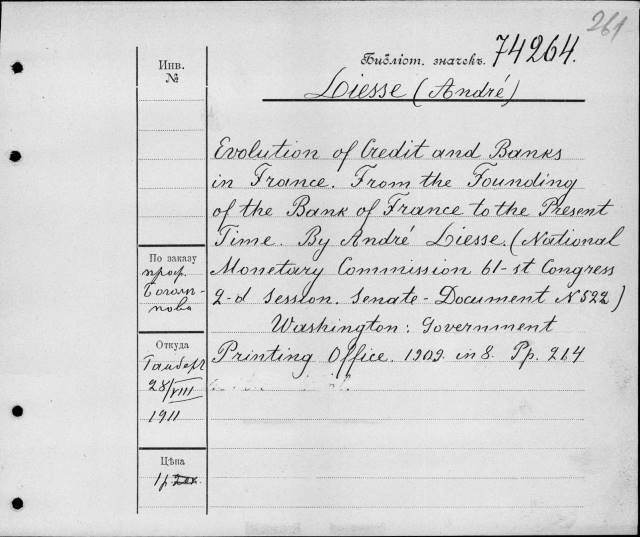 261
Инв. №
Библіот. значекъ. 74264.
Liesse (André)
Evolution of Credit and Banks
in France. From the Founding
of the Bank of France to the Present
Time. By André Liesse. (National
Monetary Commission 61-st Congress
2-d Session. Senate-Document N 522)
Washington: Government
Printing Office. 1909. in 8. Pp. 214
По заказу
проф.
Боголѣ-
пова
Откуда
28/VIII
1911
Цѣна
1 р.